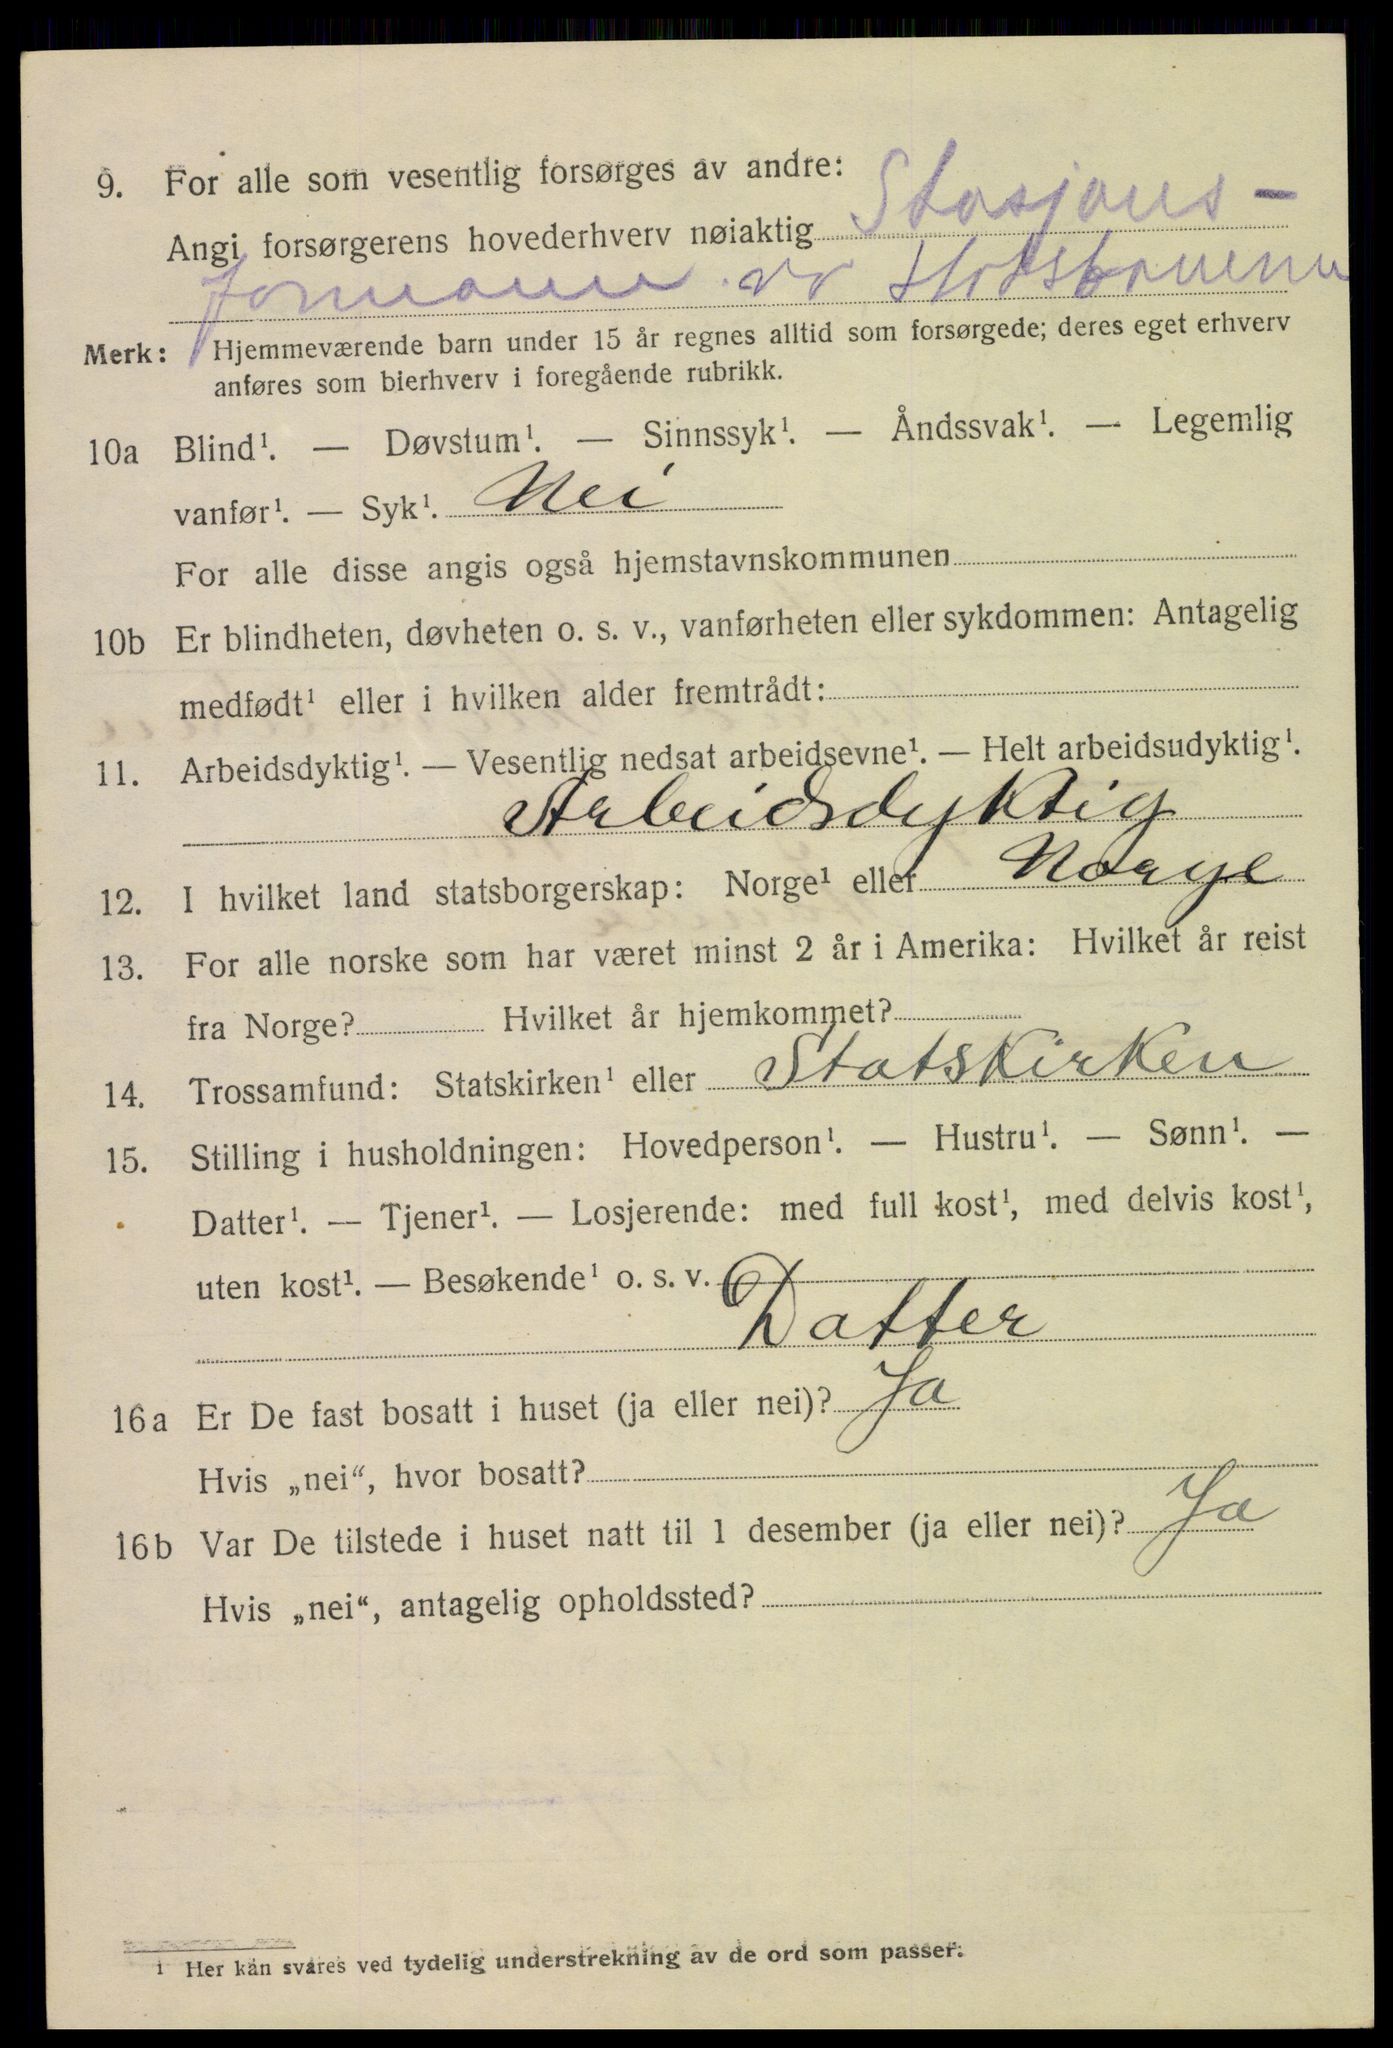 9. For alle som vesentlig forsørges av andre:
Angi forsørgerens hovederhverv nøiaktig Stasjons-
formann vd Hovedbanen
Merk: Hjemmeværende barn under 15 år regnes alltid som forsørgede; deres eget erhverv
anføres som bierhverv i foregående rubrikk.
10a Blind¹. — Døvstum¹. — Sinnssyk¹. — Åndssvak¹. — Legemlig
vanfør¹. — Syk¹. Nei
For alle disse angis også hjemstavnskommunen
10b Er blindheten, døvheten o. s. v., vanførheten eller sykdommen: Antagelig
medfødt¹ eller i hvilken alder fremtrådt:
11. Arbeidsdyktig¹. — Vesentlig nedsat arbeidsevne¹. — Helt arbeidsudyktig¹.
Arbeidsdyktig
12. I hvilket land statsborgerskap: Norge¹ eller Norge
13. For alle norske som har været minst 2 år i Amerika: Hvilket år reist
fra Norge? Hvilket år hjemkommet?
14. Trossamfund: Statskirken¹ eller Statskirken
15. Stilling i husholdningen: Hovedperson¹. — Hustru¹. — Sønn¹. —
Datter¹. — Tjener¹. — Losjerende: med full kost¹, med delvis kost¹,
uten kost¹. — Besøkende¹ o. s. v.
Datter
16a Er De fast bosatt i huset (ja eller nei)? Ja
Hvis „nei“, hvor bosatt?
16b Var De tilstede i huset natt til 1 desember (ja eller nei)? Ja
Hvis „nei“, antagelig opholdssted?
1 Her kan svares ved tydelig understrekning av de ord som passer.